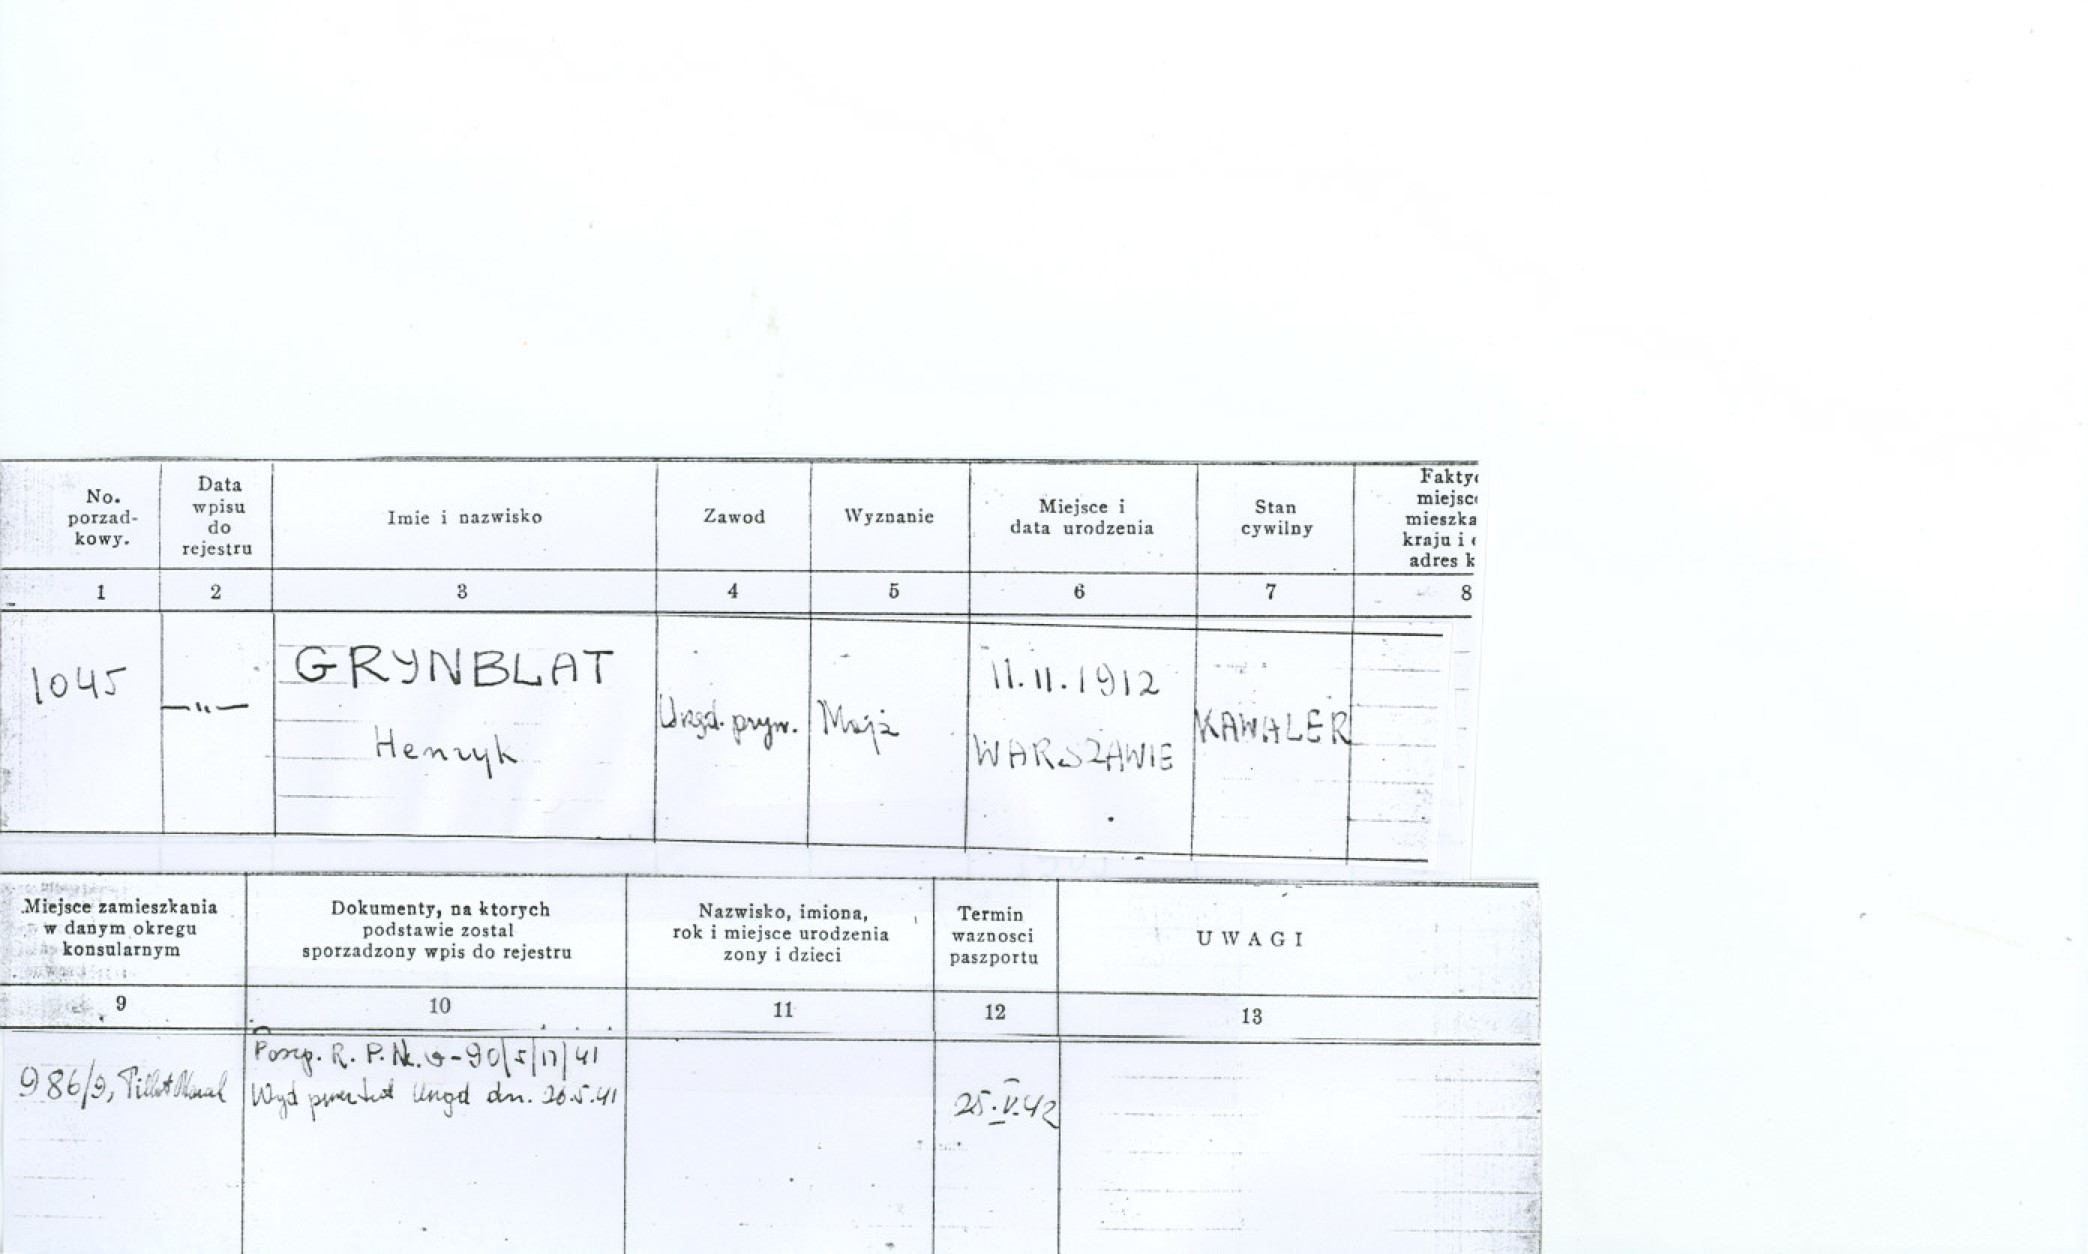 No.
porzad-
kowy.
Data
wpisu
do
rejestru
Imie i nazwisko
Zawod
Wyznanie
Miejsce i
data urodzenia
Stan
cywilny
Fakty
miejsc
mieszka
kraju i
adres k
1
2
3
4
5
6
7
8
1045
—"—
GRYNBLAT
Henryk
Urzęd. pryw.
Mojż
11.11.1912
WARSZAWIE
KAWALER
Miejsce zamieszkania
w danym okregu
konsularnym
Dokumenty, na ktorych
podstawie zostal
sporzadzony wpis do rejestru
Nazwisko, imiona,
rok i miejsce urodzenia
zony i dzieci
Termin
waznosci
paszportu
UWAGI
9
10
11
12
13
986/9,
R. P. 90/5/17/41
Urząd dn. 26.5.41
25.V.42